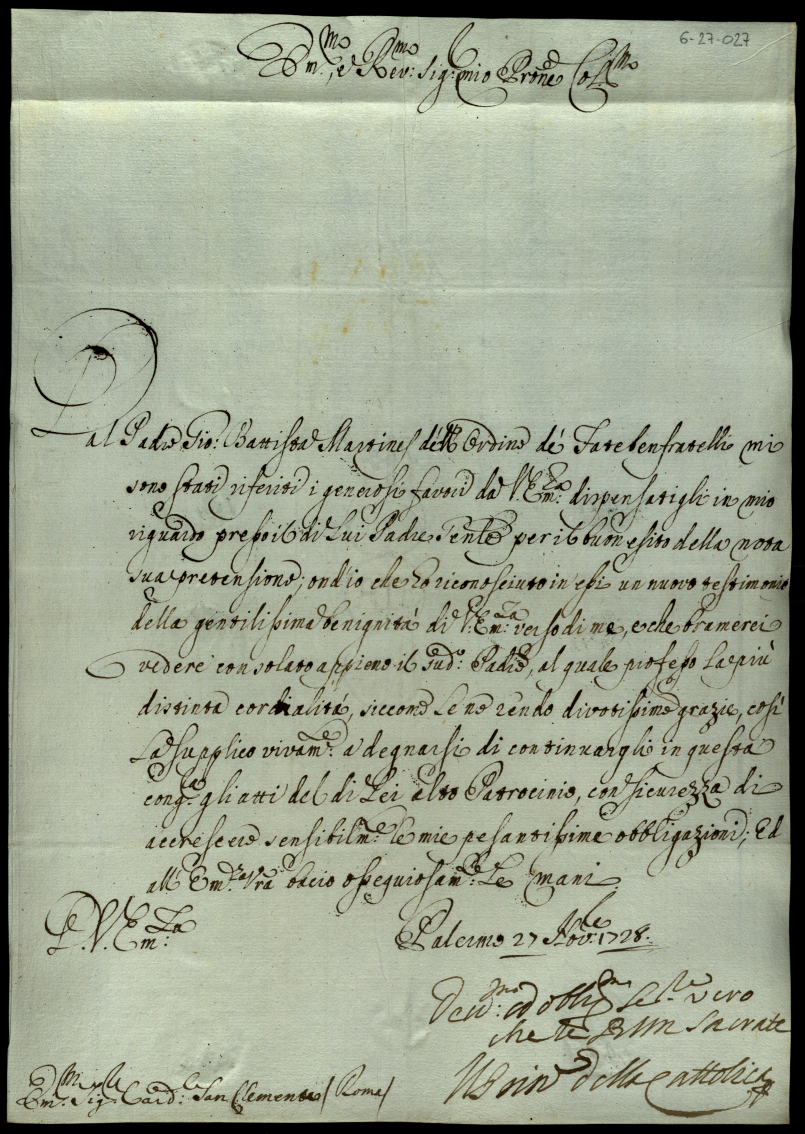 6-27-027
Em.mo, e Rev.mo Sig.r mio P̃rone Col.mo
Dal Padre Gio: Battista Martines dell' Ordine dé Fatebenfratelli mi
sono stati riferiti i generosi favori da V. Em.za dispensatigli in mio
riguardo presso il di Lui Padre Gen.le per il buon esito della nota
sua pretensione; ond'io che hò riconosciuto in essi un nuovo testimonio
della gentilissima benignità di V. Em.za verso di me, e che bramerei
vedere consolato appieno il sud.o Padre, al quale professo la più
distinta cordialità, siccome Le ne rendo divotissime grazie, così
La supplico vivam.e a degnarsi di continuargli in questa
cong.a gli atti del di Lei alto Patrocinio, con sicurezza di
accrescere sensibilm.e le mie pesantissime obbligazioni; Ed
all' Em.za Vr̃a bacio ossequiosam.e Le mani
D. V. Em.za
Palermo 27 Nov.bre 1728.
Dev.mo ed obblig.mo Se.re vero
che le B: Um. Sacrate
Il Prin.e della Cattolica
Em.mo Sig.r Card.le San Clemente / Roma /